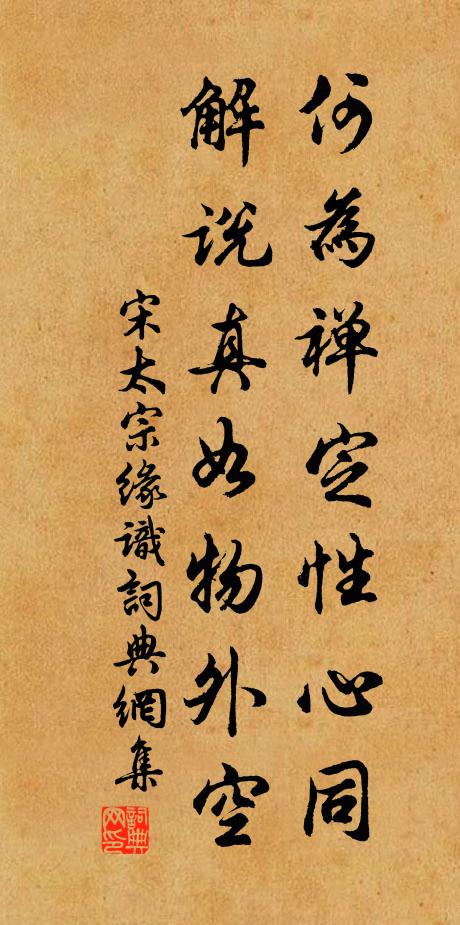 何為禅定性心同
解説真如物外空
宋太宗緣識詞典網集
詞典网印